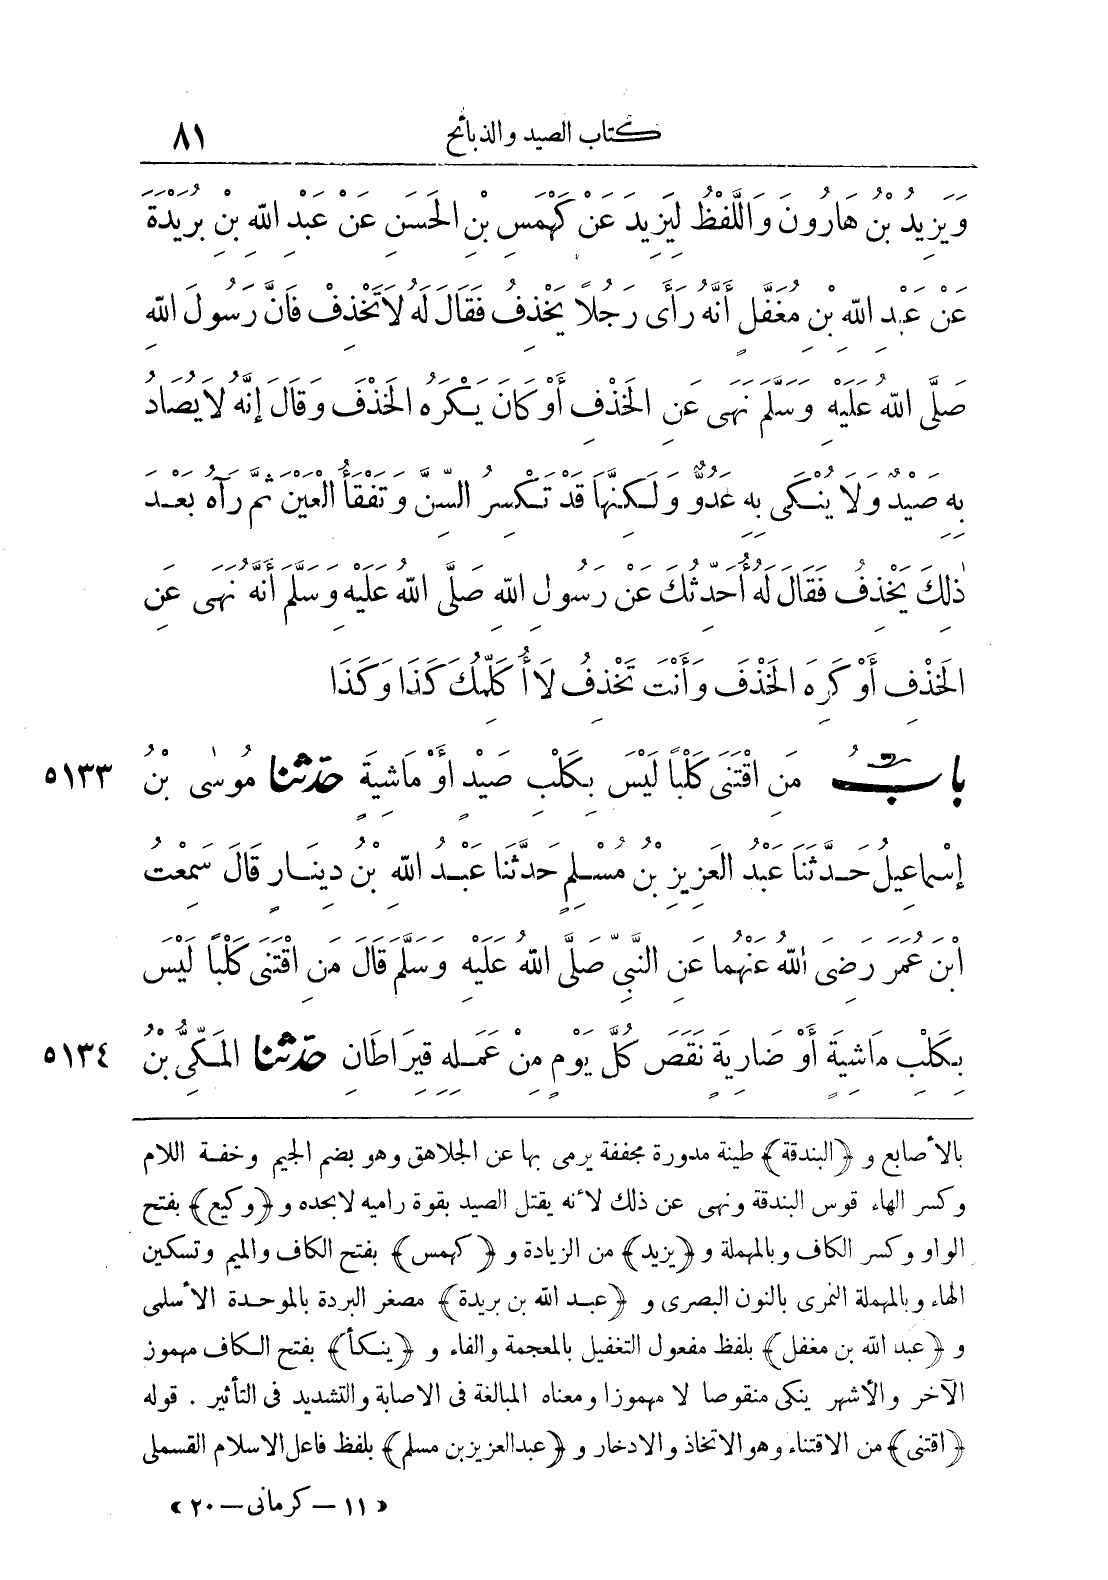 كتاب الصيد والذبائح ٨١
وَيَزِيدُ بْنُ هَارُونَ وَاللَّفْظُ لِيَزِيدَ عَنْ كَهْمَسِ بْنِ الْحَسَنِ عَنْ عَبْدِ اللهِ بْنِ بُرَيْدَةَ
عَنْ عَبْدِ اللهِ بْنِ مُغَفَّلٍ أَنَّهُ رَأَى رَجُلًا يَخْذِفُ فَقَالَ لَهُ لَا تَخْذِفْ فَانَّ رَسُولَ اللهِ
صَلَّى اللهُ عَلَيْهِ وَسَلَّمَ نَهَى عَنِ الْخَذْفِ أَوْ كَانَ يَكْرَهُ الْخَذْفَ وَقَالَ إِنَّهُ لَا يُصَادُ
بِهِ صَيْدٌ وَلَا يُنْكَى بِهِ عَدُوٌّ وَلَكِنَّهَا قَدْ تَكْسِرُ السِّنَّ وَتَفْقَأُ الْعَيْنَ ثُمَّ رَآهُ بَعْدَ
ذٰلِكَ يَخْذِفُ فَقَالَ لَهُ أُحَدِّثُكَ عَنْ رَسُولِ اللهِ صَلَّى اللهُ عَلَيْهِ وَسَلَّمَ أَنَّهُ نَهَى عَنِ
الْخَذْفِ أَوْ كَرِهَ الْخَذْفَ وَأَنْتَ تَخْذِفُ لَا أُكَلِّمُكَ كَذَا وَكَذَا
بابُ مَنِ اقْتَنَى كَلْبًا لَيْسَ بِكَلْبِ صَيْدٍ أَوْ مَاشِيَةٍ حدثنا مُوسٰى بْنُ ٥١٣٣
إِسْمَاعِيلَ حَدَّثَنَا عَبْدُ الْعَزِيزِ بْنُ مُسْلِمٍ حَدَّثَنَا عَبْدُ اللهِ بْنُ دِينَارٍ قَالَ سَمِعْتُ
ابْنَ عُمَرَ رَضِىَ اللهُ عَنْهُمَا عَنِ النَّبِىِّ صَلَّى اللهُ عَلَيْهِ وَسَلَّمَ قَالَ مَنِ اقْتَنَى كَلْبًا لَيْسَ
بِكَلْبِ مَاشِيَةٍ أَوْ ضَارِيَةٍ نَقَصَ كُلَّ يَوْمٍ مِنْ عَمَلِهِ قِيرَاطَانِ حدثنا الْمَكِّىُّ بْنُ ٥١٣٤
بالأصابع و ﴿البندقة﴾ طينة مدورة مجففة يرمى بها عن الجلاهق وهو بضم الجيم وخفة اللام
وكسر الهاء قوس البندقة ونهى عن ذلك لأنه يقتل الصيد بقوة راميه لا بحده و ﴿وكيع﴾ بفتح
الواو وكسر الكاف وبالمهملة و ﴿يزيد﴾ من الزيادة و ﴿كهمس﴾ بفتح الكاف والميم وتسكين
الهاء وبالمهملة النمرى بالنون البصرى و ﴿عبد الله بن بريدة﴾ مصغر البردة بالموحدة الأسلمى
و ﴿عبد الله بن مغفل﴾ بلفظ مفعول التغفيل بالمعجمة والفاء و ﴿ينكأ﴾ بفتح الكاف مهموز
الآخر والأشهر ينكى منقوصا لا مهموزا ومعناه المبالغة فى الاصابة والتشديد فى التأثير . قوله
﴿اقتنى﴾ من الاقتناء وهو الاتخاذ والادخار و ﴿عبد العزيز بن مسلم﴾ بلفظ فاعل الاسلام القسملى
« ١١ – كرمانى – ٢٠ »